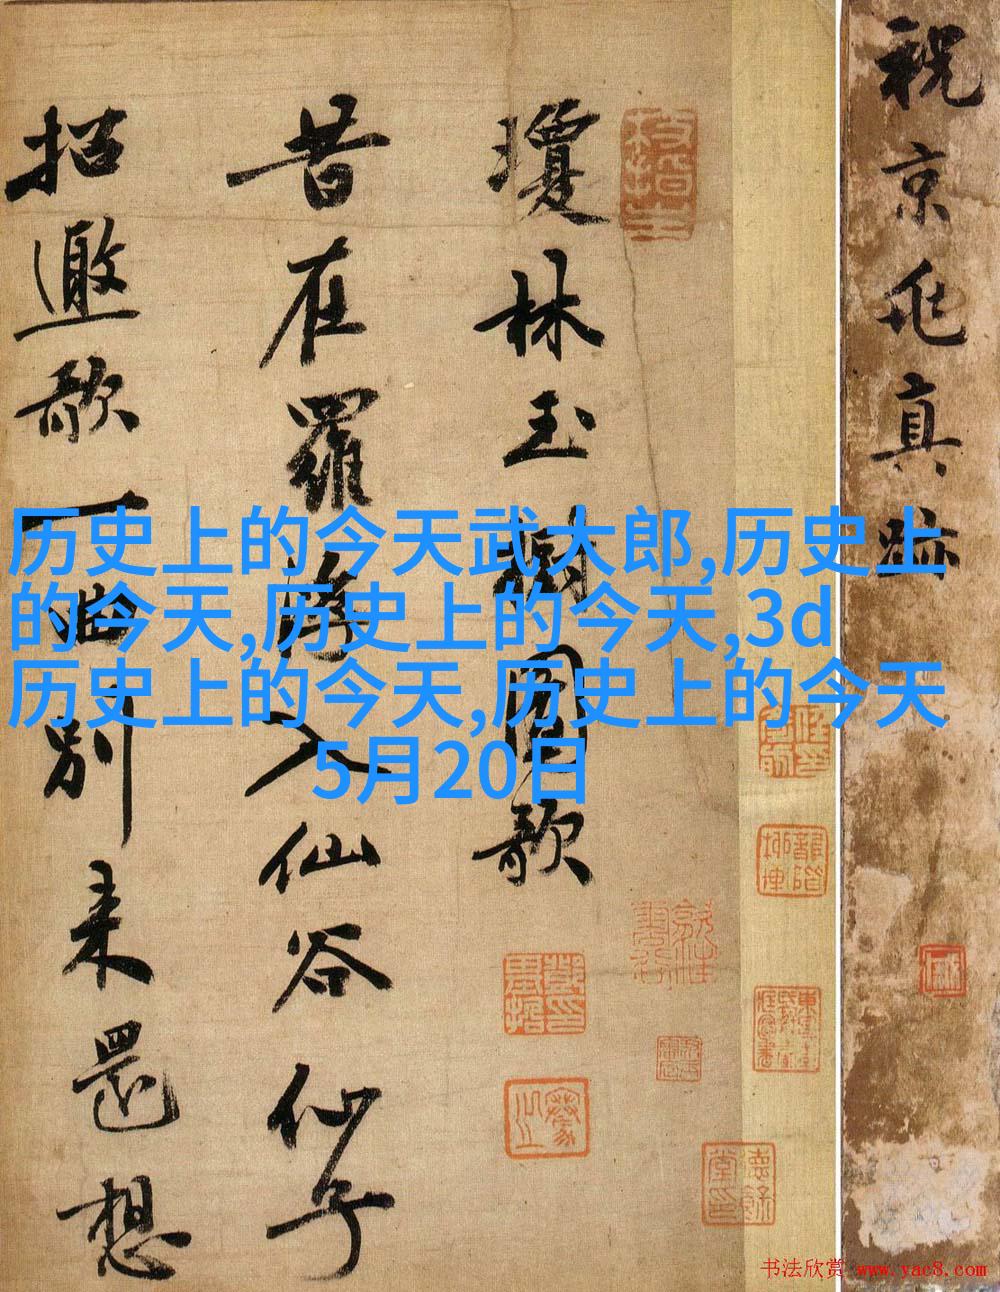 祝京兆真跡
瓊林玉樹圖歌
昔在羅浮入仙谷仙子
招邀歌一曲別來還想
历史上的今天武大郎,历史上
的今天,历史上的今天,3d
历史上的今天,历史上的今天
5月20日
书法欣赏 www.yac8.com